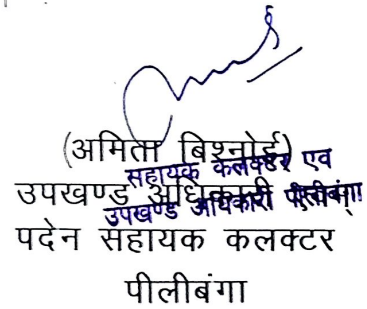 (अमिता बिश्नोई)
सहायक कलक्टर एव
उपखण्ड अधिकारी एवम्
उपखण्ड अधिकारी पीलीबंगा
पदेन सहायक कलक्टर
पीलीबंगा